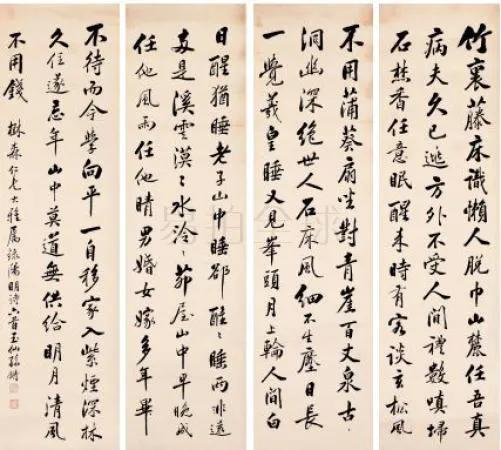 竹裏藤床識懶人脫巾山麓任吾真
病夫久已逃方外不受人間禮數嗔掃
石焚香任意眠醒来時有客談玄松風
不用蒲葵扇坐對青崖百丈泉古
洞幽深絕世人石床風細不生塵日長
一覺羲皇睡又見峯頭月上輪人間白
日醒猶睡老子山中睡卻醒〻睡兩非還
兩是溪雲漠〻水泠〻茆屋山中早晚成
任他風雨任他晴男婚女嫁多年畢
不待而今學向平一自移家入紫煙深林
久住遂忘年山中莫道無供給明月清風
不用錢 楙森仁兄大雅屬錄陽明詩六首玉仙孫鏘
易拍全球